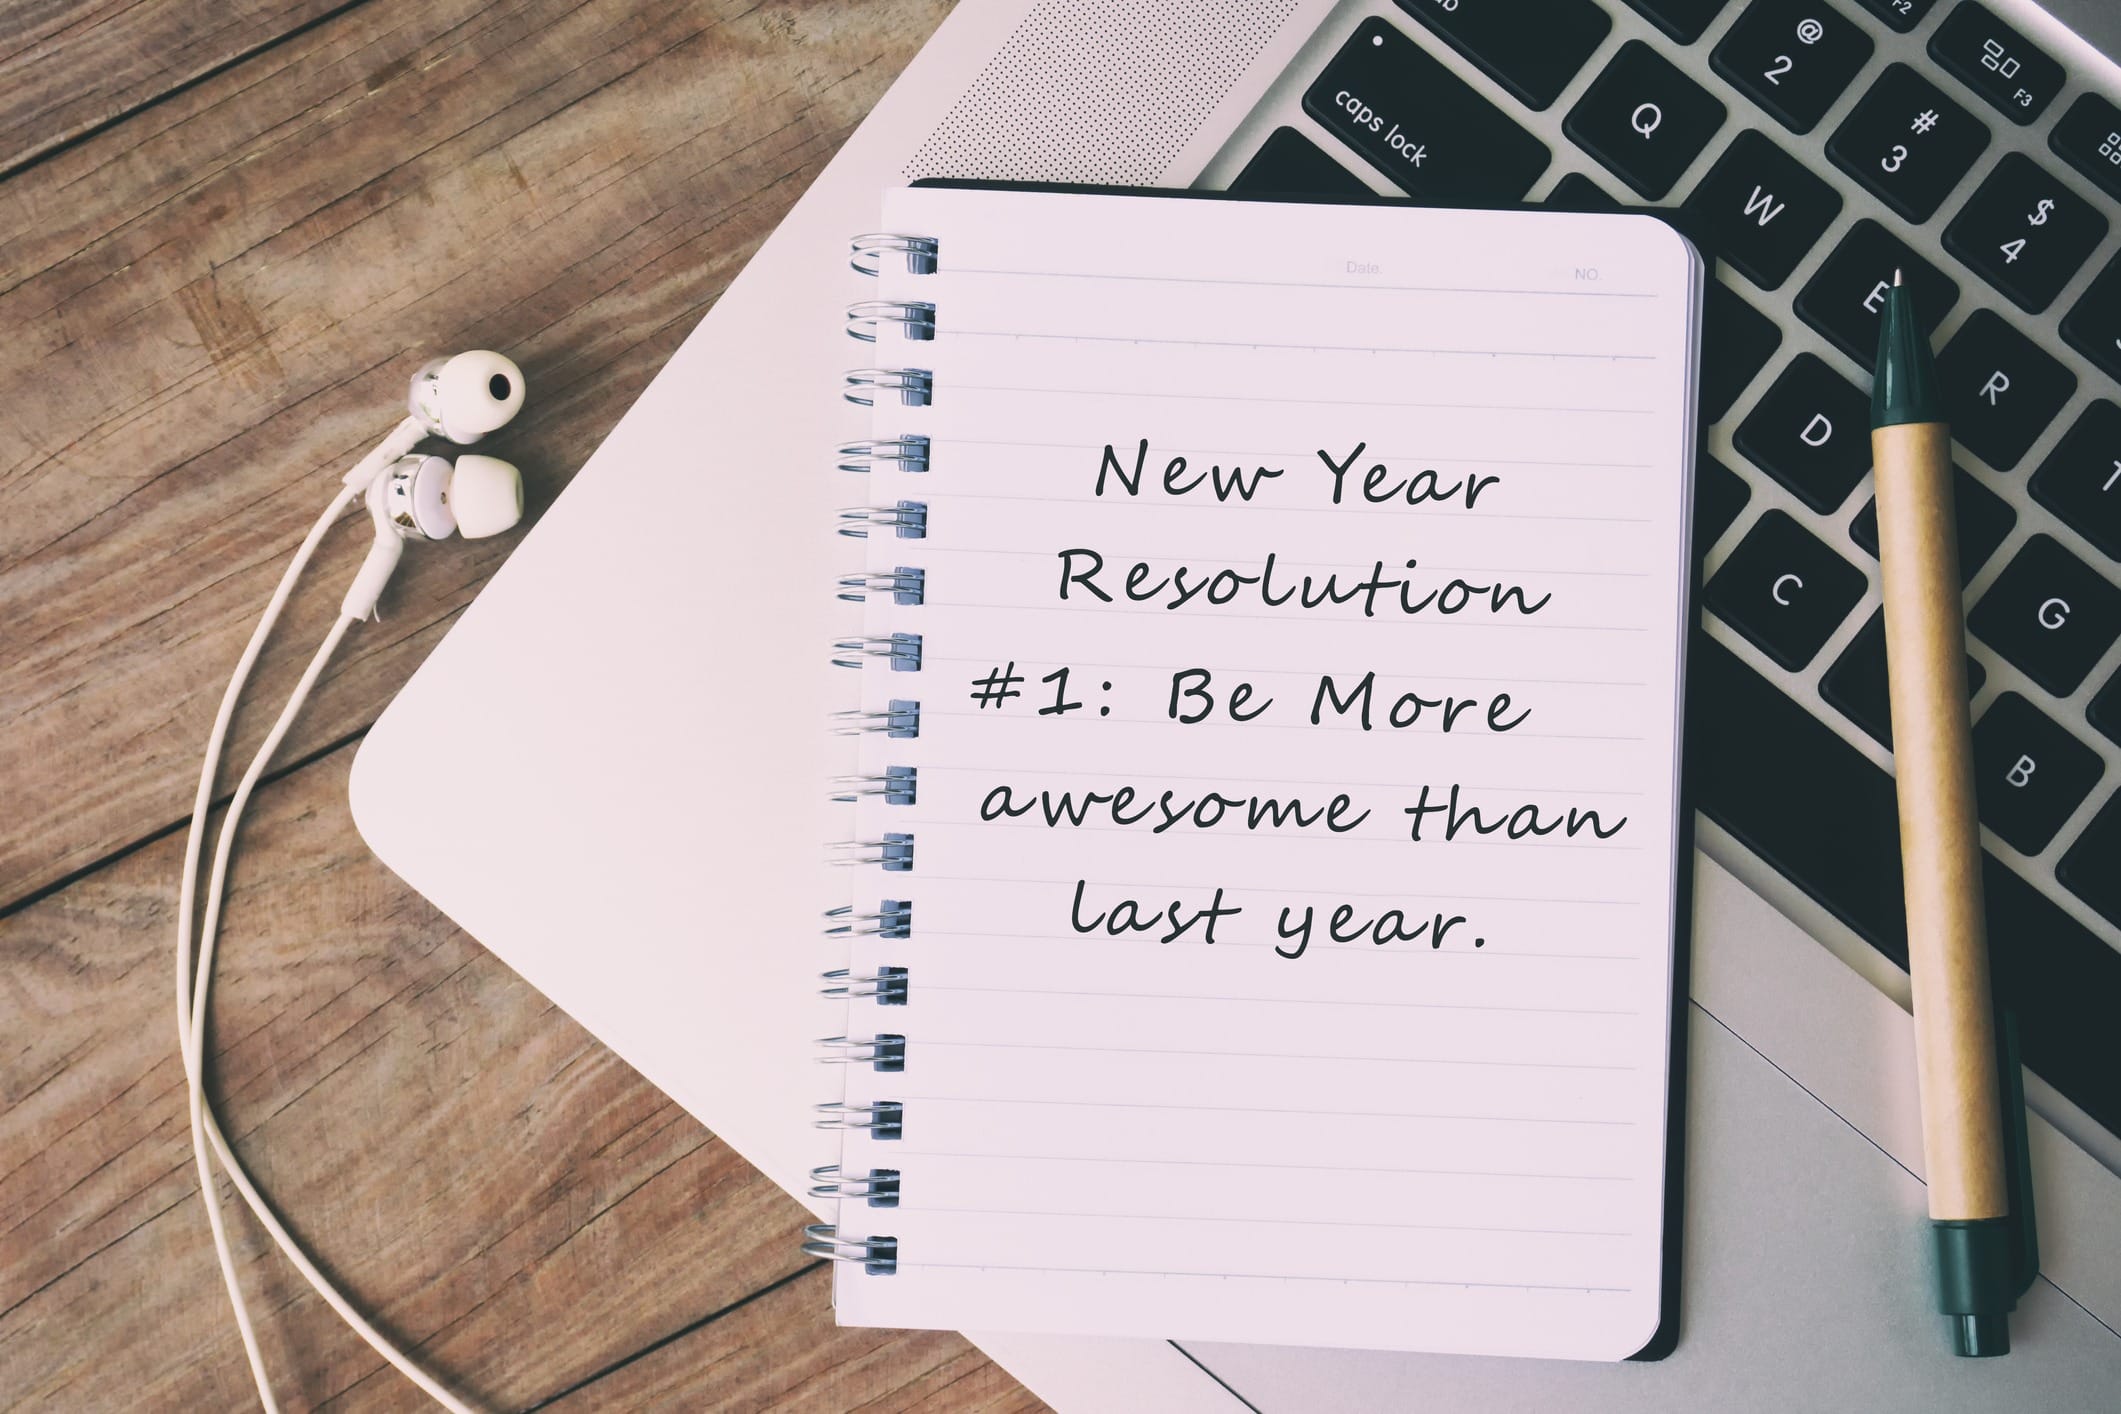 Date.
NO.
New Year
Resolution
#1: Be More
awesome than
last year.
caps lock
@
2
F2
Q
#
3
F3
W
$
4
E
R
D
C
G
B